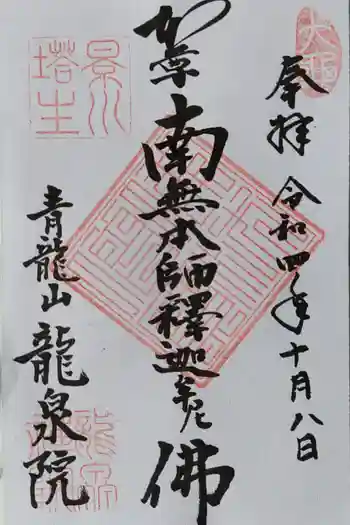 奉拝 令和四年十月八日
如寧
南無本師釋迦牟尼佛
青龍山 龍泉院
景川
塔主
龍泉